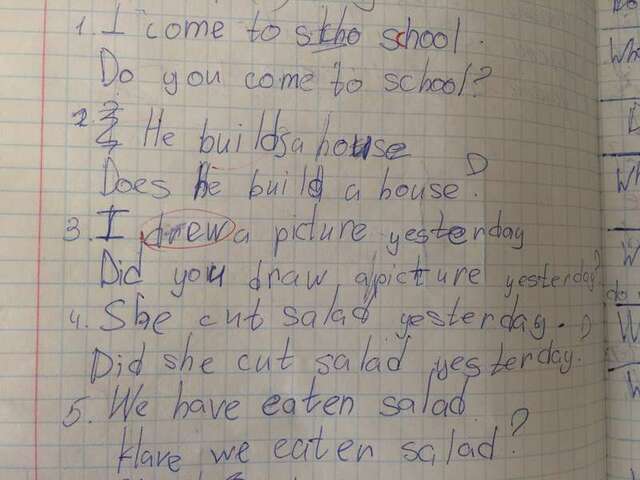 1. I come to stho school.
Do you come to school?
2 He builds a house
Does he build a house.
3. I drew a picture yesterday
Did you draw a picture yesterday?
4. She cut salad yesterday.
Did she cut salad yesterday.
5. We have eaten salad
Have we eaten salad?